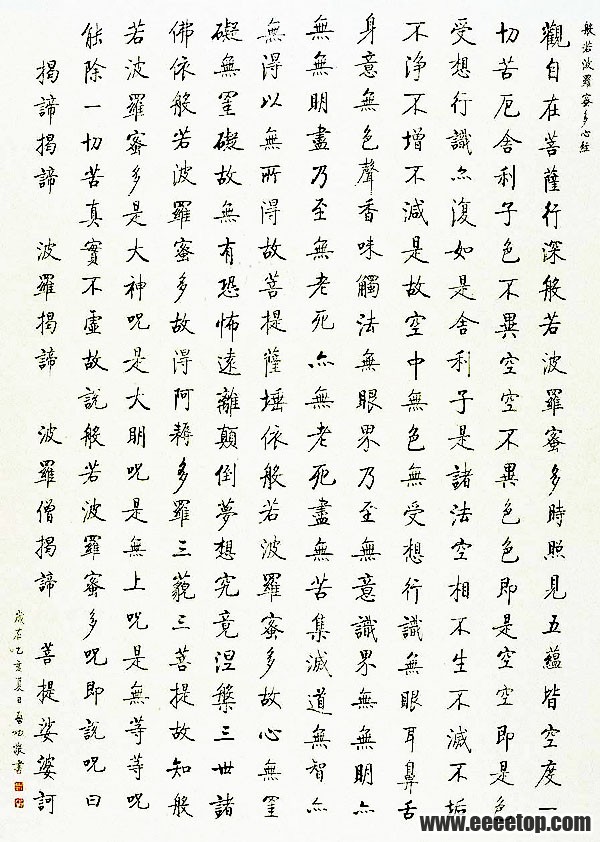 般若波羅蜜多心經
觀自在菩薩行深般若波羅蜜多時照見五蘊皆空度一
切苦厄舍利子色不異空空不異色色即是空空即是色
受想行識亦復如是舍利子是諸法空相不生不滅不垢
不淨不增不減是故空中無色無受想行識無眼耳鼻舌
身意無色聲香味觸法無眼界乃至無意識界無無明亦
無無明盡乃至無老死亦無老死盡無苦集滅道無智亦
無得以無所得故菩提薩埵依般若波羅蜜多故心無罣
礙無罣礙故無有恐怖遠離顛倒夢想究竟涅槃三世諸
佛依般若波羅蜜多故得阿耨多羅三藐三菩提故知般
若波羅蜜多是大神呪是大明呪是無上呪是無等等呪
能除一切苦真實不虛故說般若波羅蜜多呪即說呪曰
揭諦揭諦 波羅揭諦 波羅僧揭諦 菩提娑婆訶
歲在乙亥夏日啟功敬書
www.eeeetop.com